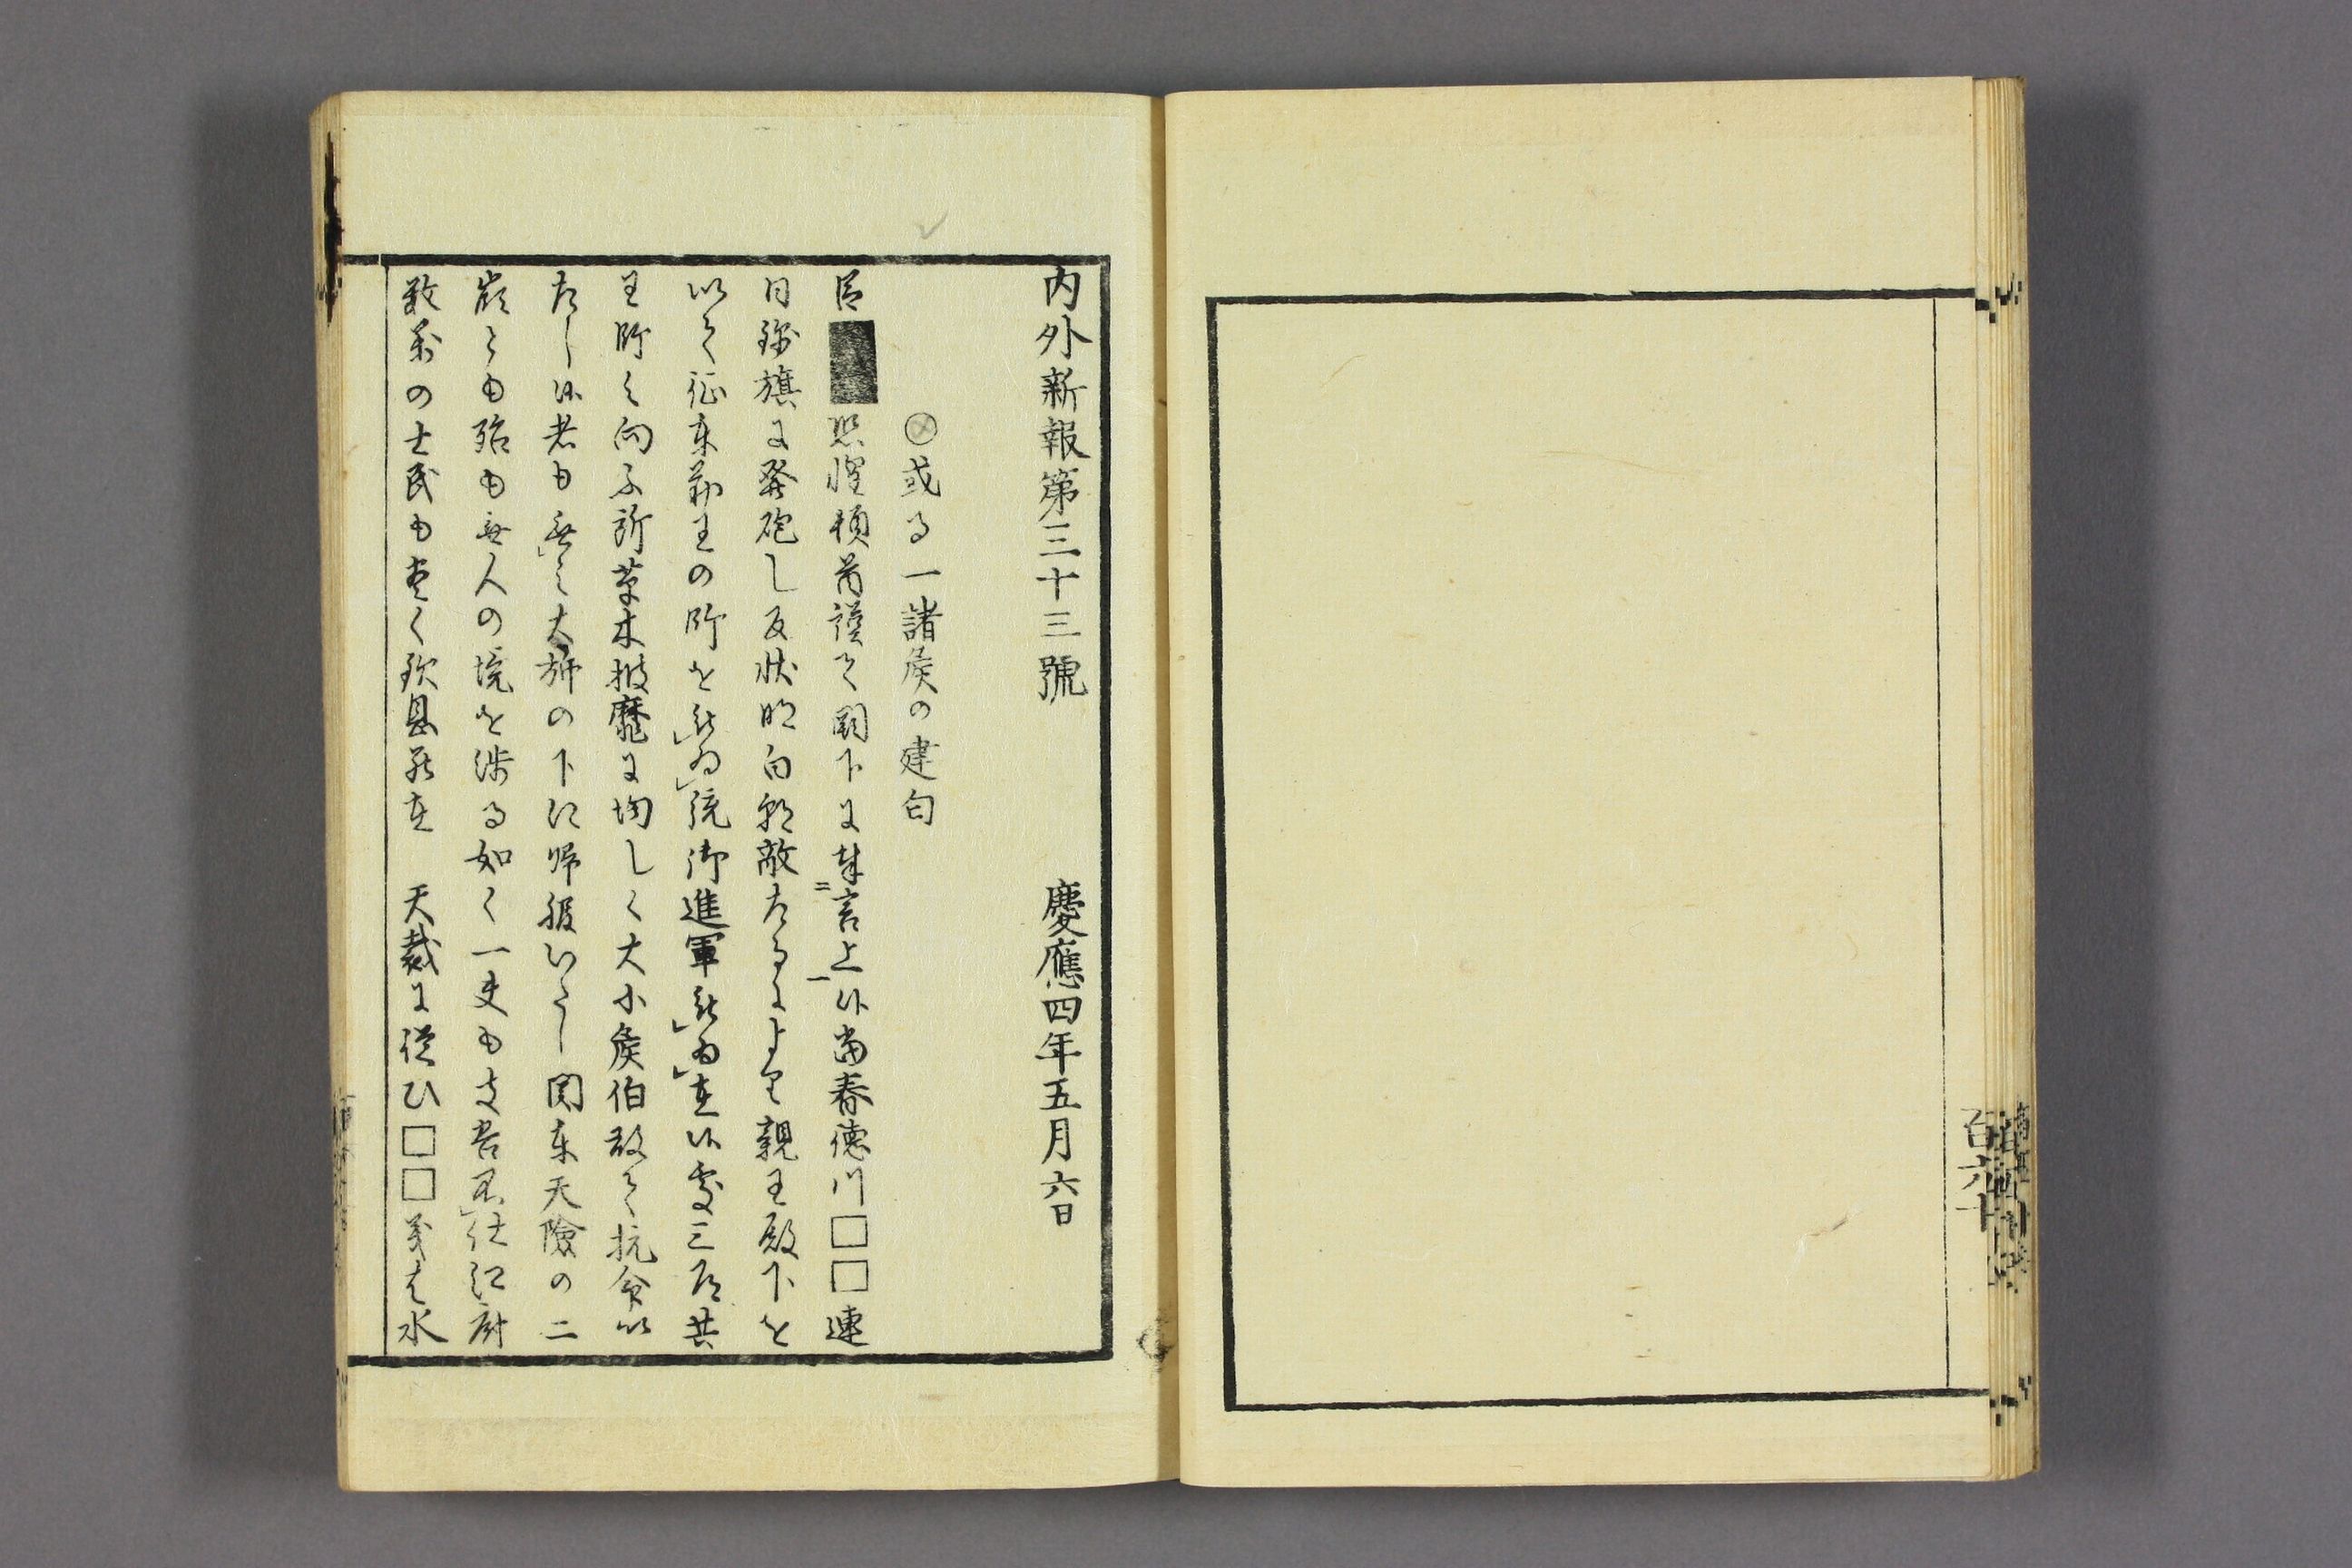 内外新報第三十三號 慶應四年五月六日
或る一諸侯の建白
臣■恐惶頓首謹て闕下に奉言上候当春徳川□□連
日錦旗に発砲し反状明白朝敵たるにより親王殿下を
以て征東勤王の師を被為統御進軍被為在候處三道共
王師之向ふ所草木披靡に均しく大小侯伯敢て抗命
たし候者も無之大旆の下に帰服いたし関東天険の二
嶺とも殆も無人の境を渉る如く一支も支吾不仕江府
数万の士民も尽く 天裁に従ひ□□義は水
百六十